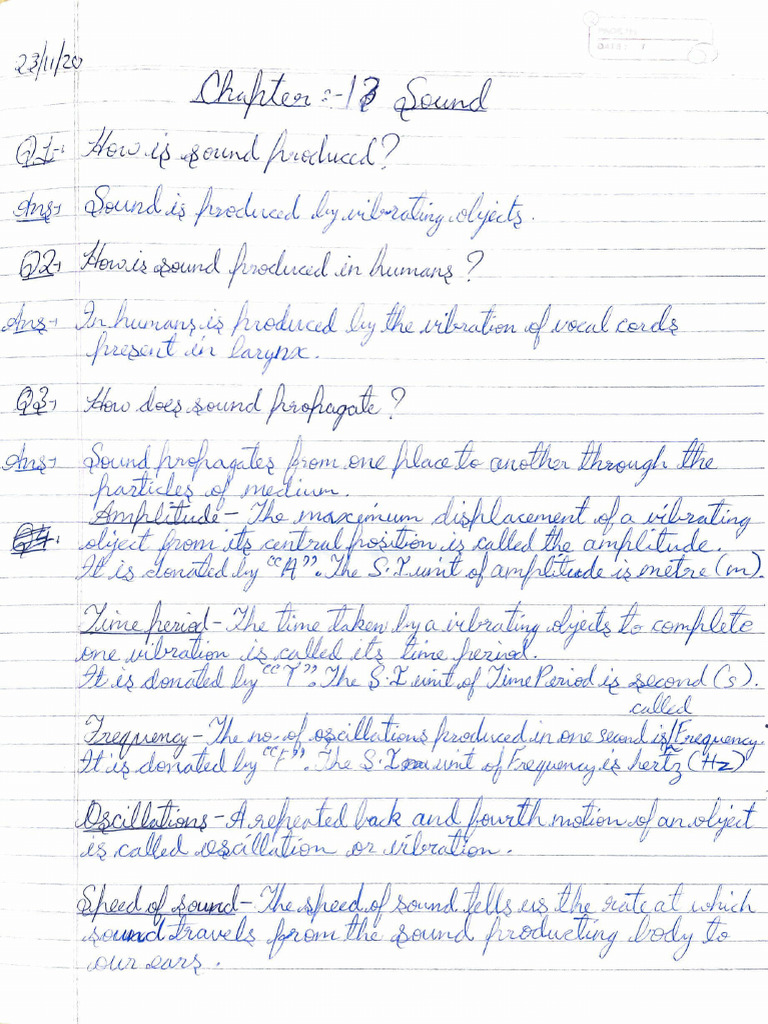 23/11/20
Chapter :- 13 Sound
Q1- How is sound produced?
Ans- Sound is produced by vibrating objects.
Q2- How is sound produced in humans?
Ans- In humans is produced by the vibration of vocal cords
present in larynx.
Q3- How does sound propagate?
Ans- Sound propagates from one place to another through the
particles of medium.
Amplitude- The maximum displacement of a vibrating
Q4. object from its central position is called the amplitude.
It is donated by "A". The S.I unit of amplitude is metre (m).
Time period- The time taken by a vibrating objects to complete
one vibration is called its time period.
It is donated by "T". The S.I unit of Time Period is second (s).
called
Frequency- The no. of oscillations produced in one second is/Frequency.
It is donated by "f". The S.I unit of Frequency is hertz (Hz)
Oscillations- A repeated back and fourth motion of an object
is called oscillation or vibration.
Speed of sound- The speed of sound tells us the rate at which
sound travels from the sound producting body to
our ears.